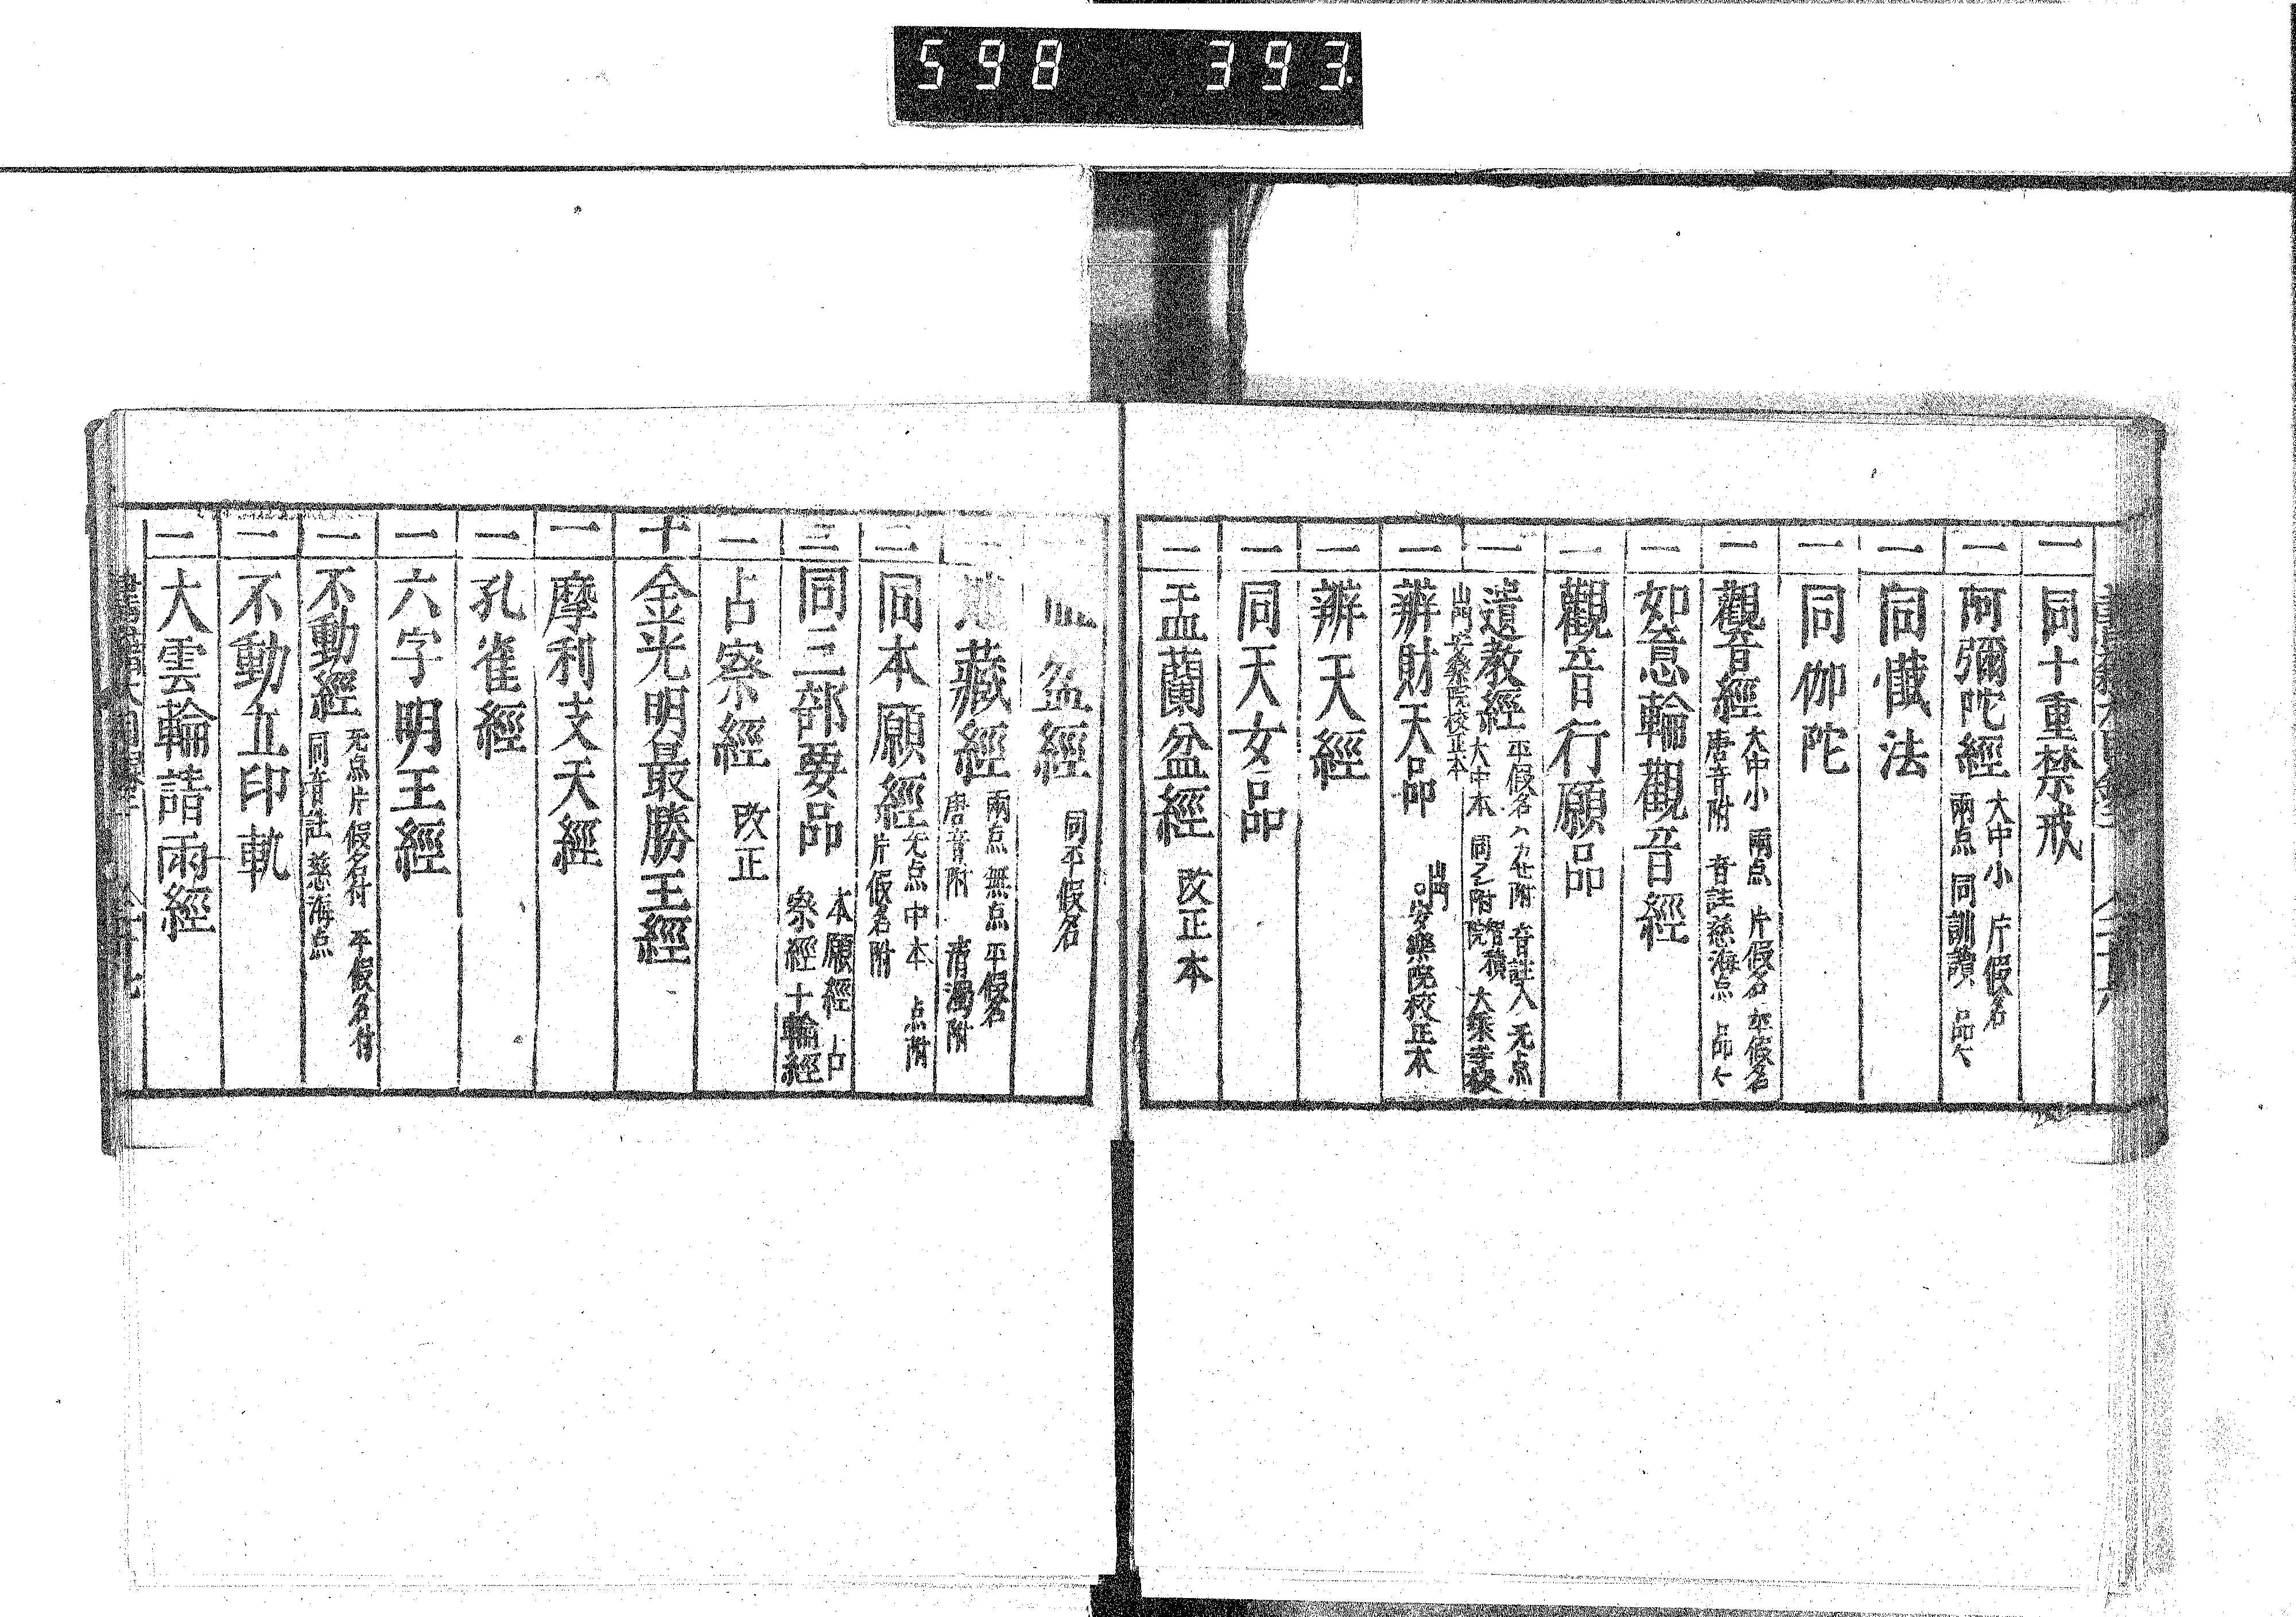 598 393.
一 同十重禁戒
一 阿彌陀經 大中小 片假名 兩点 同訓讀 品々
一 同懺法
一 同伽陀
一 觀音經 大中小 兩点 片假名 平假名 唐音附 音註慈海点 品々
一 如意輪觀音經
一 觀音行願品
一 遺教經 平假名 音註入 无点 大中本 同乙附 智積院 大乘寺校
山門安樂院校正本
一 辨財天品 山門安樂院校正本
一 辨天經
一 同天女品
一 盂蘭盆經 改正本
盆經 同平假名
地藏經 兩点 無点 平假名 唐音附 清濁附
二 同本願經 无点中本 点附 片假名附
三 同三部要品 本願經 占察經 十輪經
一 占察經 改正
十 金光明最勝王經
一 摩利支天經
一 孔雀經
一 六字明王經
一 不動經 无点 片假名付 平假名付 同音註 慈海点
一 不動立印軌
一 大雲輪請雨經